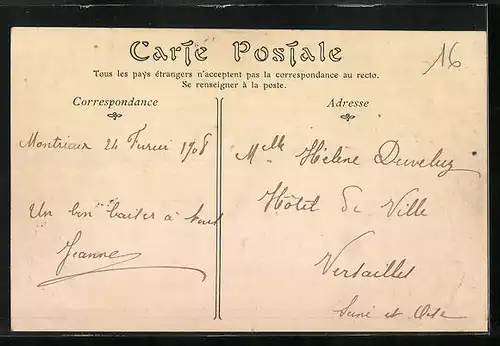 Carte Postale
Tous les pays étrangers n'acceptent pas la correspondance au recto.
Se renseigner à la poste.
16
Correspondance
Adresse
24 1908
Un bon baiser à tous
Jeanne
Melle Hélène
Hôtel de Ville
Versailles
Seine et Oise